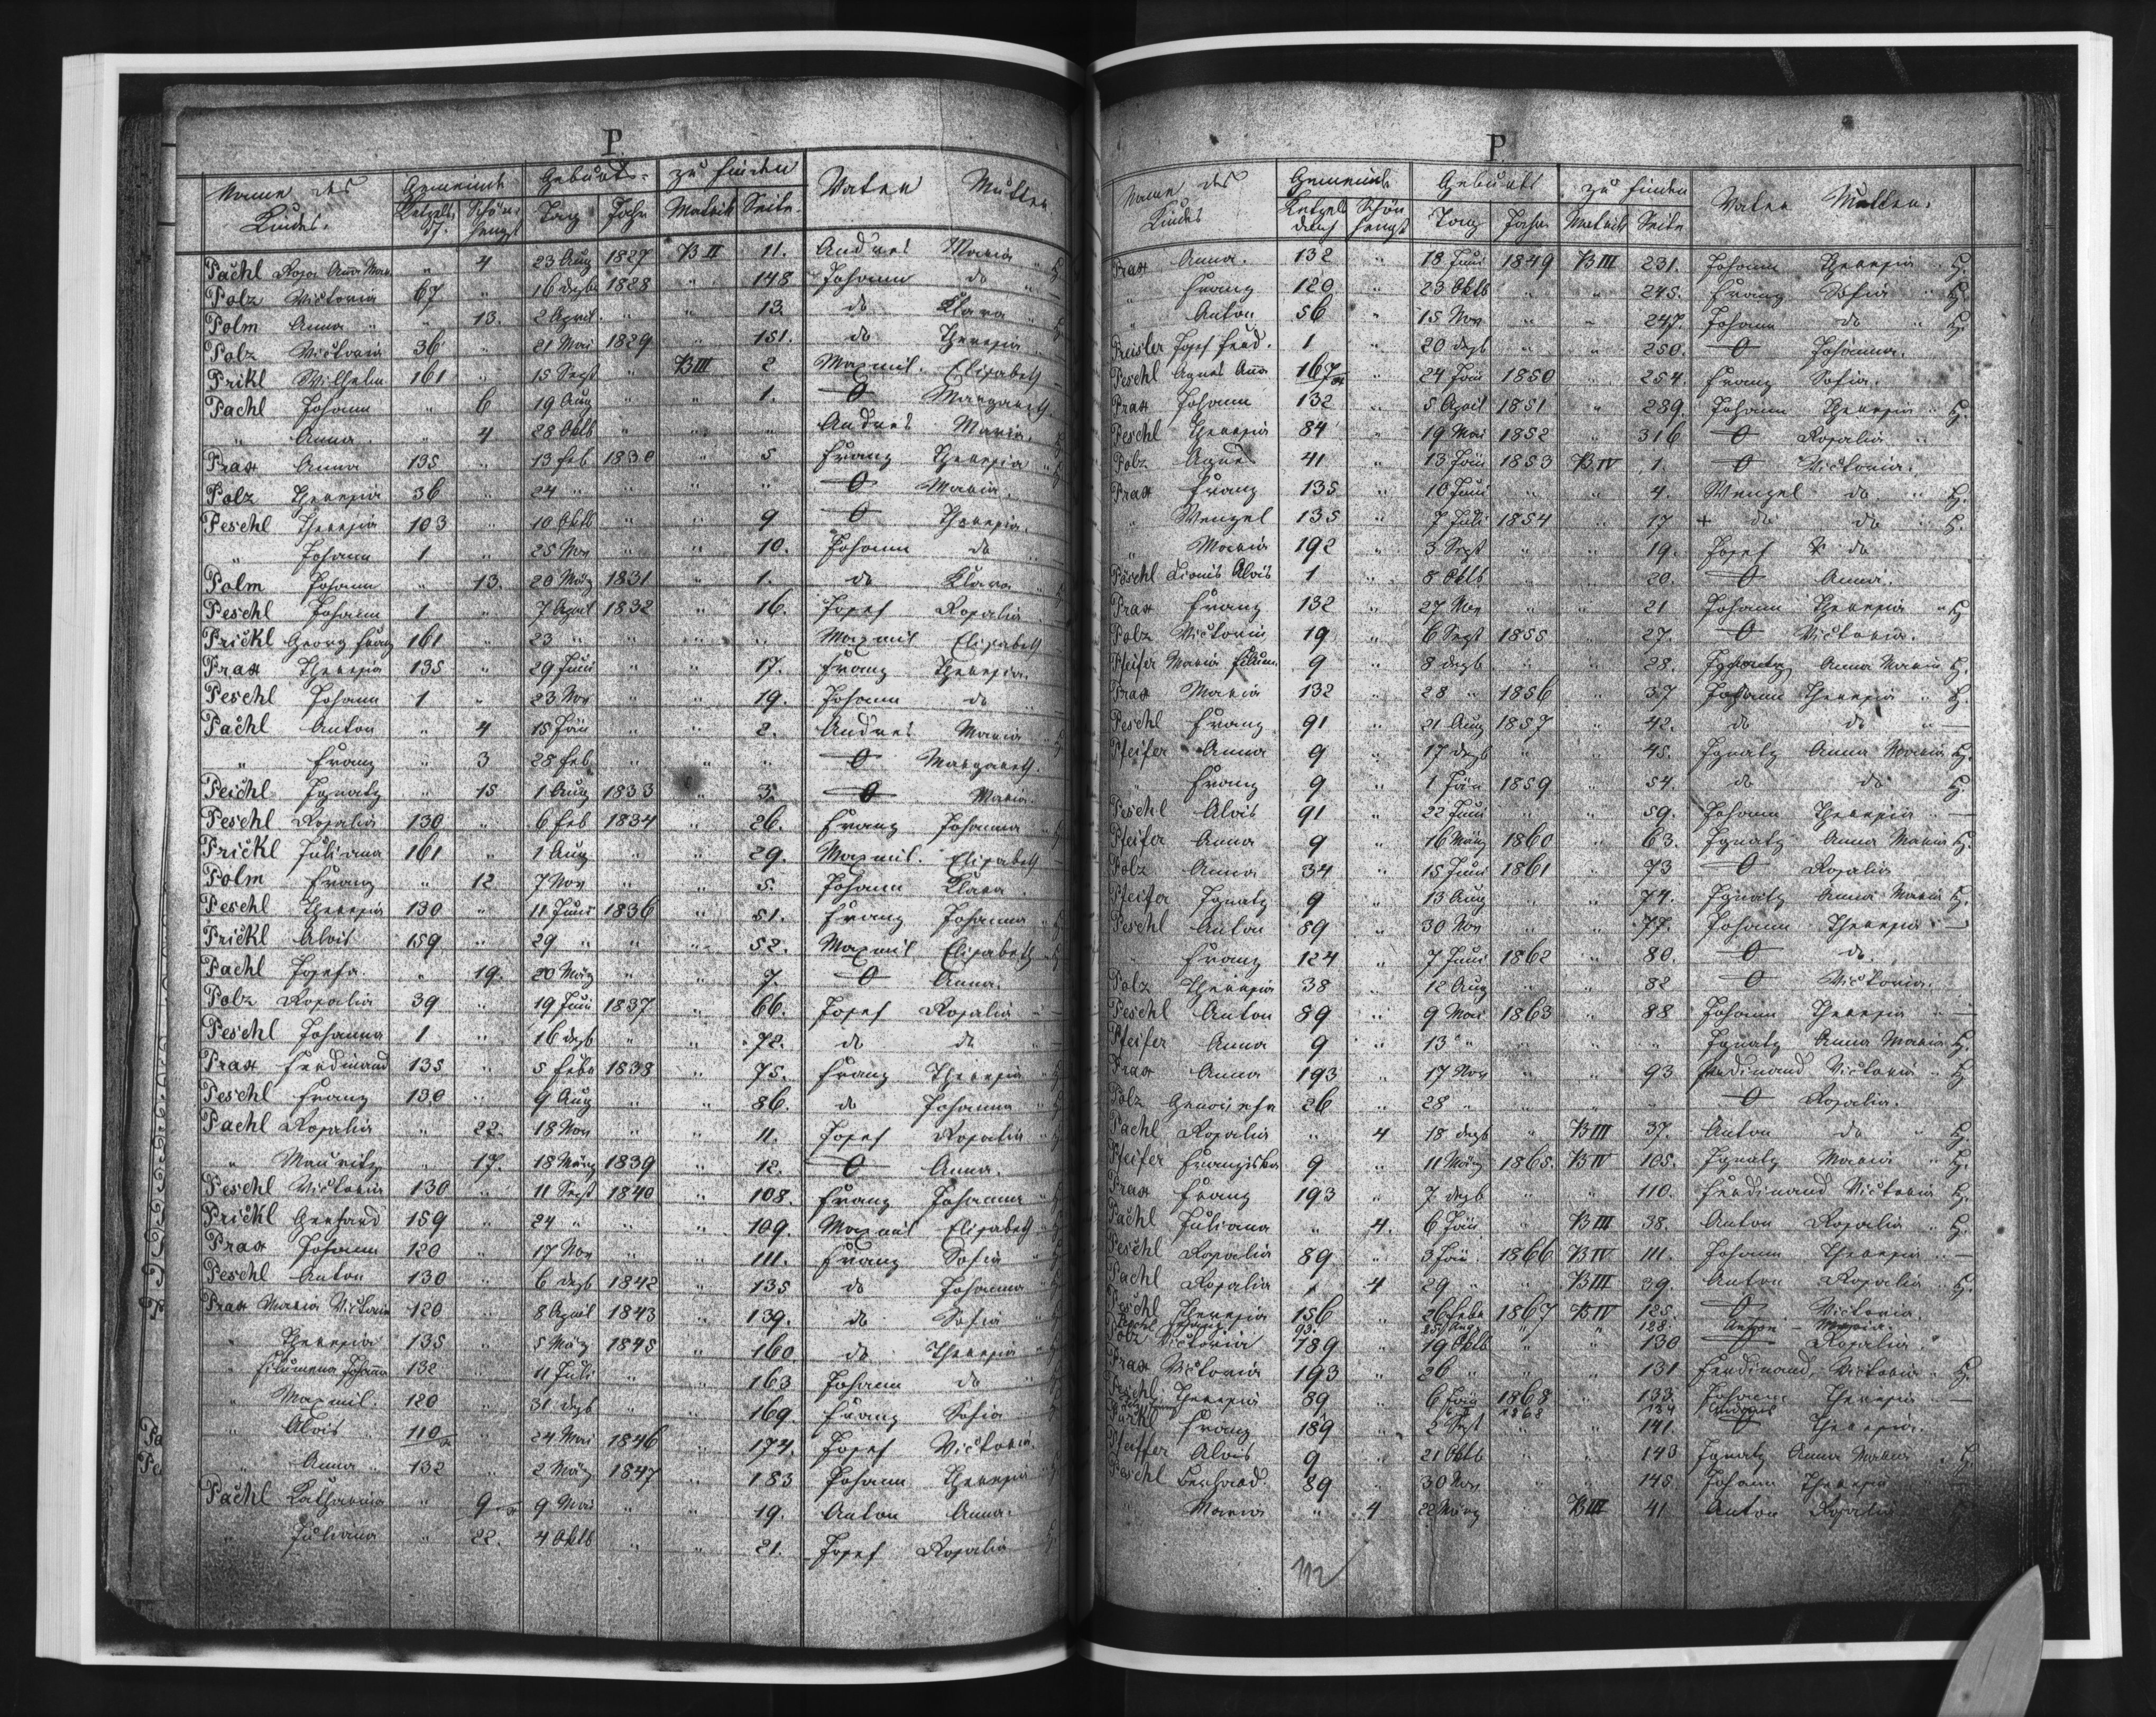 P.
Name des Kindes. Gemeinde Geburts- zu finden Vater Mutter
Ketzelsdf. Schönhengst Tag Jahr Matrik Seite.
Pachl Rosa Anna Mar. " 4 23 Aug 1827 B II 11. Andres Maria
Polz Victoria 67 " 16 dezb 1828 " 148 Johann do
Polm Anna " 13. 2 April " " 13. do Klara
Polz Victoria 36 " 21 Mai 1829 " 151. do Theresia
Prikl Wilhelm 161 " 15 Sept " B III 2 Maxmil. Elisabeth
Pachl Johann " 6 19 Aug " " 1. O Margareth.
" Anna " 4 28 Oktb " " " Andres Maria.
Prax Anna 135 " 13 Feb 1830 " 5 Franz Theresia
Polz Theresia 36 " 24 " " " " O Maria.
Peschl Theresia 103 " 10 Oktb " " 9 O Theresia.
" Johann 1 " 25 Nov " " 10. Johann do
Polm Johann " 13. 20 März 1831 " 1. do Klara
Peschl Johann 1 " 7 April 1832 " 16. Josef Rosalia
Prickl Georg Franz 161 " 23 " " " " Maxmil Elisabeth
Prax Theresia 135 " 29 Juni " " 17. Franz Theresia.
Peschl Johann 1 " 23 Nov " " 19. Johann do
Pachl Anton " 4 15 Jän " " 2. Andres Maria
" Franz " 3 28 Feb " " " O Margareth.
Peichl Ignatz " 15 1 Aug 1833 " 3. O Maria.
Peschl Rosalia 130 " 6 Feb 1834 " 26. Franz Johanna
Prickl Juliana 161 " 1 Aug " " 29. Maxmil. Elisabeth
Polm Franz " 12 7 Nov " " 5. Johann Klara
Peschl Theresia 130 " 11 Juni 1836 " 51. Franz Johanna
Prickl Alois 159 " 29 " " " 52. Maxmil Elisabeth
Pachl Josefa " 19. 20 März " " 7. O Anna.
Polz Rosalia 39 " 19 Juni 1837 " 66. Josef Rosalia
Peschl Johanna 1 " 16 dezb " " 72. do do
Prax Ferdinand 135 " 5 Febr 1838 " 75. Franz Theresia
Peschl Franz 130 " 9 Aug " " 86. do Johanna
Pachl Rosalia " 22. 18 Nov " " 11. Josef Rosalia
" Mauritz " 17. 18 März 1839 " 12. O Anna.
Peschl Victoria 130 " 11 Sept 1840 " 108. Franz Johanna
Prickl Gerhard 159 " 24 " " " 109. Maxmil Elisabeth
Prax Johann 120 " 17 Nov " " 111. Franz Sofia
Peschl Anton 130 " 6 dezb 1842 " 135 do Johanna
Prax Maria Victoria 120 " 8 April 1843 " 139. do Sofia
" Theresia 135 " 5 März 1845 " 160. do Theresia
" Filumena Johanna 132 " 11 Juli " " 163 Johann do
" Maxmil. 120 " 31 dezb " " 169. Franz Sofia
" Alois 110 " 24 Mai 1846 " 174. Josef Victoria.
" Anna 132 " 2 März 1847 " 183 Johann Theresia
Pachl Katharina " 9 9 Mai " " 19. Anton Anna.
" Juliana " 22. 4 Oktb " " 21. Josef Rosalia
P.
Name des Kindes Gemeinde Geburts zu finden Vater Mutter.
Ketzelsdorf Schönhengst Tag Jahr Matrik Seite
Prax Anna. 132 " 18 Juni 1849 B III 231. Johann Theresia
" Franz 120 " 23 Oktb " " 245. Franz Sofia
" Anton 56 " 15 Nov " " 247. Johann do
Preisler Josef Ferd. 1 " 20 dezb " " 250. O Johanna.
Peschl Agnes Anna 167 " 24 Jän 1850 " 254. Franz Sofia.
Prax Johann 132 " 5 April 1851 " 289. Johann Theresia
Peschl Theresia 84 " 19 Mai 1852 " 316 O Rosalia
Polz Agnes 41 " 13 Jän 1853 B IV 1. O Victoria.
Prax Franz 135 " 10 Juni " " 4. Wenzel do
" Wenzel 135 " 7 Juli 1854 " 17 + do do
" Maria 192 " 3 Sept " " 19. Josef do
Pöschl Alois 1 " 8 Oktb " " 20. O Anna.
Prax Franz 132 " 27 Nov " " 21 Johann Theresia
Polz Victoria 19 " 6 Sept 1855 " 27. O Victoria.
Pfeifer Maria Filum. 9 " 8 dezb " " 28. Ignatz Anna Maria
Prax Maria 132 " 28 " 1856 " 37 Johann Theresia
Peschl Franz 91 " 21 Aug 1857 " 42. do do
Pfeifer Anna 9 " 17 dezb " " 45. Ignatz Anna Maria
" Franz 9 " 1 Jän 1859 " 54. do do
Peschl Alois 91 " 22 Juni " " 59. Johann Theresia
Pfeifer Anna 9 " 16 März 1860 " 63. Ignatz Anna Maria
Polz Anna 34 " 15 Juni 1861 " 73 O Rosalia
Pfeifer Ignatz 9 " 13 Aug " " 74. Ignatz Anna Maria
Peschl Anton 89 " 30 Nov " " 77. Johann Theresia
" Franz 124 " 7 Juni 1862 " 80. O do.
Polz Theresia 38 " 12 Aug " " 82 O Victoria.
Peschl Anton 89 " 9 Mai 1863 " 88 Johann Theresia
Pfeifer Anna 9 " 13 " " " " Ignatz Anna Maria
Prax Anna 193 " 17 Nov " " 93 Ferdinand Victoria
Polz Genovefa 26 " 28 " " " " O Rosalia.
Pachl Rosalia " 4 18 dezb " B III 37. Anton do
Pfeifer Franziska 9 " 11 März 1865. B IV 105. Ignatz Maria
Prax Franz 193 " 7 dezb " " 110. Ferdinand Victoria
Pachl Juliana " 4. 6 Jän " B III 38. Anton Rosalia
Peschl Rosalia 89 " 3 Jän. 1866 B IV 111. Johann Theresia
Pachl Rosalia " 4 29 " " B III 39. Anton Rosalia
Peschl Theresia 156 " 26 Febr 1867 B IV 125 O Victoria.
93. 128. Anton
Polz Victoria 189 " 19 Oktb " " 130 O Rosalia.
Prax Victoria 193 " 26 " " " 131 Ferdinand, Victoria
Peschl Theresia 89 " 6 Jän 1868 " 133. Johann Theresia
1868 134
Franz 189 " 2 Sept " " 141. O Theresia.
Pfeiffer Alois 9 " 21 Oktb " " 143 Ignatz Anna Maria
Peschl 89 " 30 Nov " " 145. Johann Theresia
Maria " 4 22 März " B III 41 Anton Rosalia
112